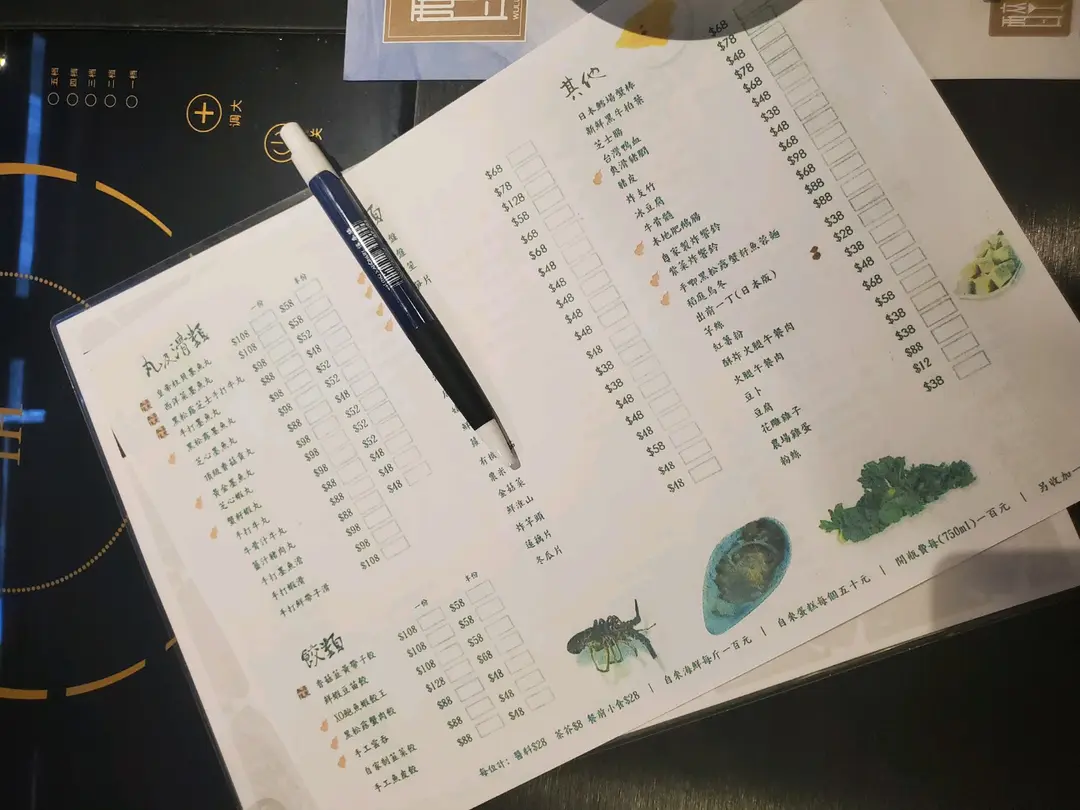 五档
四档
三档
二档
一档
调大
丸及滑類
一份
半份
皇帝枝竹墨魚丸
西洋菜墨魚丸
黑松露芝士手打牛丸
手打墨魚丸
黑松露墨魚丸
芝心墨魚丸
頂級香菇貢丸
黃金墨魚丸
芝心蝦丸
蟹籽蝦丸
手打牛丸
牛醬汁牛丸
蕃汁豬肉丸
手打墨魚滑
手打蝦滑
手打鮮帶子滑
$108
$108
$98
$88
$98
$88
$98
$98
$98
$98
$88
$88
$88
$98
$98
$108
$58
$58
$52
$48
$52
$48
$52
$52
$52
$52
$48
$48
餃類
一份
半份
香菇韮黃帶子餃
鮮蝦豆苗餃
XO鮑魚蝦餃王
黑松露蟹肉餃
手工雲吞
自家制韮菜餃
手工魚皮餃
$108
$108
$108
$128
$88
$88
$88
$58
$58
$58
$68
$48
$48
$48
類
盤
盤
片
粟米
金菇菜
鮮淮山
炸芋頭
蓮藕片
冬瓜片
$68
$78
$128
$58
$68
$68
$48
$48
$48
$48
$48
$38
$38
$48
$48
$48
$58
$48
$48
其他
日本鱈場蟹棒
新鮮黑牛柏葉
芝士腸
台灣鴨血
爽滑豬膶
豬皮
炸支竹
冰豆腐
牛骨髓
本地肥鵝腸
自家製炸響鈴
紫菜炸響鈴
手唧黑松露蟹籽魚蓉麵
稻庭烏冬
出前一丁(日本版)
芋絲
紅薯粉
酥炸火腿午餐肉
火腿午餐肉
豆卜
豆腐
花雕雞子
農場雞蛋
粉絲
$68
$78
$48
$78
$68
$48
$38
$48
$68
$98
$68
$88
$88
$38
$28
$38
$48
$68
$58
$38
$38
$88
$12
$38
每位計: 醬料$28 茶芥$8 餐前小食$28 | 自來海鮮每斤一百元 | 自來蛋糕每個五十元 | 開瓶費每(750ml)一百元 | 另收加一